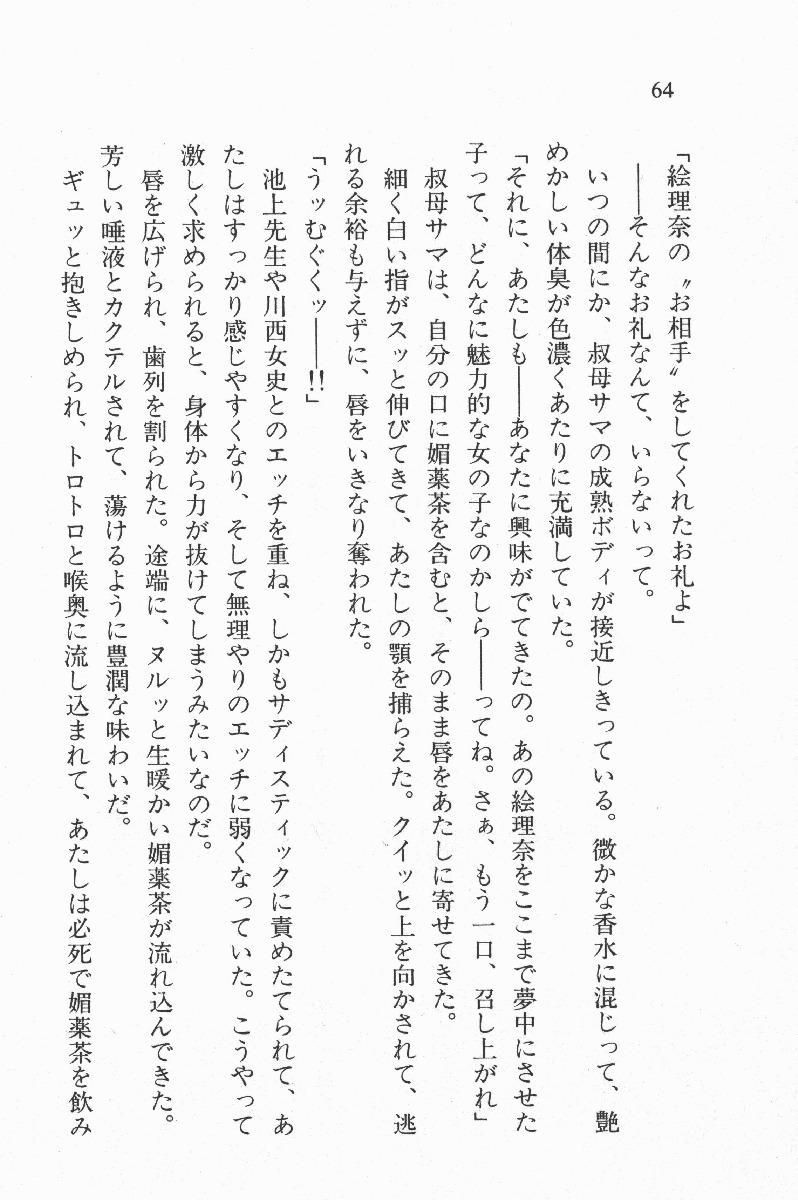 64
「絵理奈の〝お相手〟をしてくれたお礼よ」
――そんなお礼なんて、いらないって。
いつの間にか、叔母サマの成熟ボディが接近しきっている。微かな香水に混じって、艶
めかしい体臭が色濃くあたりに充満していた。
「それに、あたしも――あなたに興味がでてきたの。あの絵理奈をここまで夢中にさせた
子って、どんなに魅力的な女の子なのかしら――ってね。さぁ、もう一口、召し上がれ」
叔母サマは、自分の口に媚薬茶を含むと、そのまま唇をあたしに寄せてきた。
細く白い指がスッと伸びてきて、あたしの顎を捕らえた。クイッと上を向かされて、逃
れる余裕も与えずに、唇をいきなり奪われた。
「うッむぐくッ――!!」
池上先生や川西女史とのエッチを重ね、しかもサディスティックに責めたてられて、あ
たしはすっかり感じやすくなり、そして無理やりのエッチに弱くなっていた。こうやって
激しく求められると、身体から力が抜けてしまうみたいなのだ。
唇を広げられ、歯列を割られた。途端に、ヌルッと生暖かい媚薬茶が流れ込んできた。
芳しい唾液とカクテルされて、蕩けるように豊潤な味わいだ。
ギュッと抱きしめられ、トロトロと喉奥に流し込まれて、あたしは必死で媚薬茶を飲み